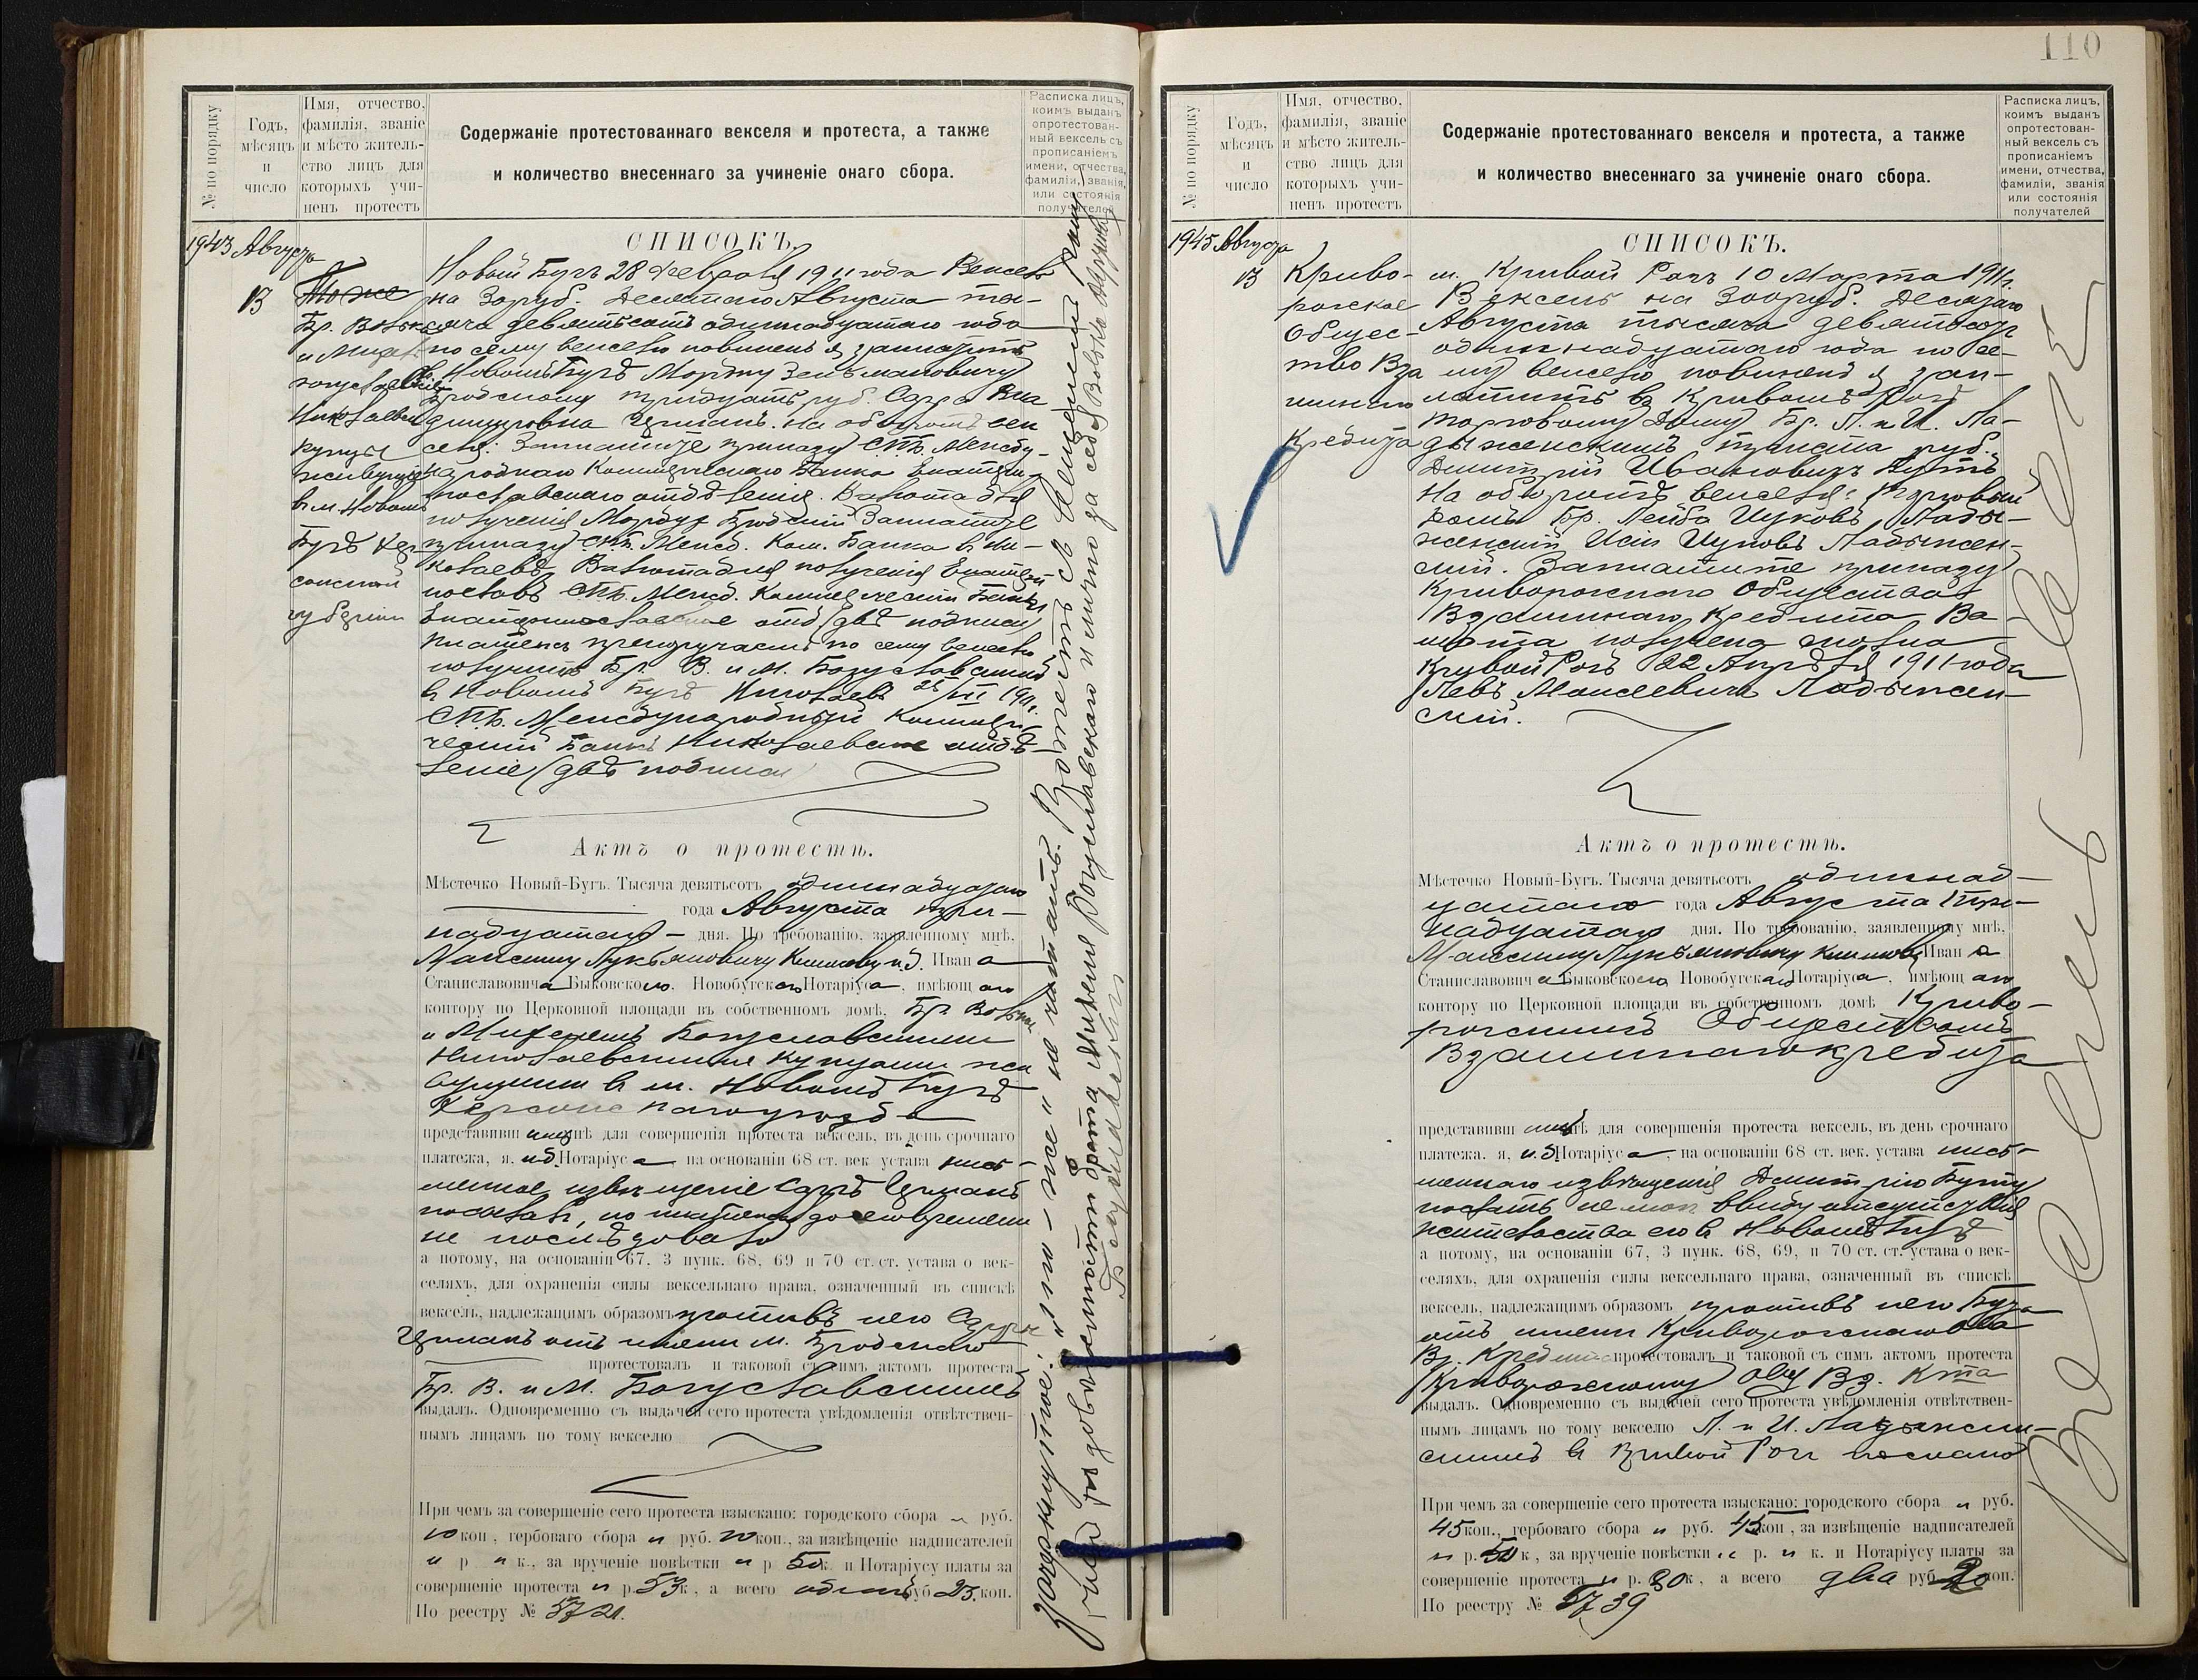 № по порядку
Годъ, мѣсяцъ и число
Имя, отчество, фамилія, званіе и мѣсто жительство лицъ для которыхъ учиненъ протестъ
Содержаніе протестованнаго векселя и протеста, а также
и количество внесеннаго за учиненіе онаго сбора.
Расписка лицъ, коимъ выданъ опротестованный вексель съ прописаніемъ имени, отчества, фамиліи, званія, или состоянія получателей
1943 Августа
13
Тоже
Бр. Волько
и Михель
Богуславскіе
Николаевск
купцы
живущіе
в м. Новомъ
Бугѣ Хер
сонской
губерніи
СПИСОКЪ.
Новый Бугъ 28 Февраля 1911 года Вексель
на 30 руб. Десятаго Августа ты-
сяча девятьсотъ одиннадцатаго года
по сему векселю повиненъ я заплатить
в Новомъ Бугѣ Мордку Зельмановичу
Бродскому тридцать руб. Сарра
Цукманъ. На оборотѣ век
селя: Заплатите приказу СПБ. Между-
народнаго Коммерческаго Банка Екатерино
славскаго отдѣленія. Валюта для
полученія Мордух Бродскій Заплатите
приказу СПБ. Межд. Ком. Банка в Ни-
колаевѣ Валюта для полученія Екатери
нославъ СПБ. Межд. Коммерческій Банкъ
Екатеринославское отд (двѣ подписи)
Платежъ препоручаемъ по сему векселю
получить Бр. В. и М. Богуславскимъ
в Новомъ Бугѣ Николаевъ 1911
СПБ. Международный Коммер
ческій Банкъ Николаевское отдѣ-
леніе (двѣ подписи)
Актъ о протестѣ.
Мѣстечко Новый-Бугъ. Тысяча девятьсотъ одиннадцатаго
года Августа три-
надцатаго дня. По требованію, заявленному мнѣ,
Максиму Лукьяновичу и.д. Ивана
Станиславовича Быковскаго, Новобугскаго Нотаріуса, имѣющаго
контору по Церковной площади въ собственномъ домѣ, Бр. Волько
и Михелемъ Богуславскими
Николаевскими купцами жи
вущими в м. Новомъ Бугѣ
Херсонскаго уѣзда
представивш ими мнѣ для совершенія протеста вексель, въ день срочнаго
платежа, я, и.д. Нотаріуса на основаніи 68 ст. век устава пись-
менное извѣщеніе Саррѣ Цукманъ
послалъ, но платежа до сего времени
не послѣдовало
а потому, на основаніи 67. 3 пунк. 68, 69 и 70 ст. ст. устава о век-
селяхъ, для охраненія силы вексельнаго права, означенный въ спискѣ
вексель, надлежащимъ образомъ противъ нею Сарры
Цукманъ отъ имени М. Бродскаго
протестовалъ и таковой съ симъ актомъ протеста
Бр. В. и М. Богуславскимъ
выдалъ. Одновременно съ выдачей сего протеста увѣдомленія отвѣтствен-
нымъ лицамъ по тому векселю
При чемъ за совершеніе сего протеста взыскано: городского сбора " руб.
10 коп, гербоваго сбора " руб. 10 коп., за извѣщеніе надписателей
" р " к., за врученіе повѣстки " р 50 к. и Нотаріусу платы за
совершеніе протеста " р 53 к, а всего одинъ руб 23 коп.
По реестру № 5721.
зачеркнутое: "или-же" не читать.
брата Михеля Богуславскаго и лично за себя Волько
Богуславскій
110
№ по порядку
Годъ, мѣсяцъ и число
Имя, отчество, фамилія, званіе и мѣсто жительство лицъ для которыхъ учиненъ протестъ
Содержаніе протестованнаго векселя и протеста, а также
и количество внесеннаго за учиненіе онаго сбора.
Расписка лицъ, коимъ выданъ опротестованный вексель съ прописаніемъ имени, отчества, фамиліи, званія или состоянія получателей
1945 Августа
13
Криво-
рожское
Общес-
тво Вза
имнаго
Кредита
СПИСОКЪ.
м. Кривой Рогъ 10 Марта 1911.
Вексель на 300 руб. Десятаго
Августа тысяча девятьсотъ
одиннадцатаго года по се-
му векселю повиненъ я зап-
латить в Кривомъ Рогѣ
Торговому Дому Бр. Л. и И. Ла-
дыженскимъ триста руб.
Дмитрій Ивановичъ Бутъ
На оборотѣ векселя: Торговый
Домъ Бр. Лейба Ицковъ Лады-
женскій Исакъ Ицковъ Ладыжен-
скій. Заплатите приказу
Криворожскаго Общества
Взаимнаго Кредита Ва-
люта получена сполна
Кривой Рогъ 22 Апрѣля 1911 года
Левъ Моисеевичъ Ладыжен-
скій.
Актъ о протестѣ.
Мѣстечко Новый-Бугъ. Тысяча девятьсотъ одиннад-
цатаго года Августа три-
надцатаго дня. По требованію, заявленному мнѣ,
Максиму Лукьяновичу Ивана
Станиславовича Быковскаго Новобугскаго Нотаріуса, имѣющаго
контору по Церковной площади въ собственномъ домѣ Криво-
рожскимъ Обществомъ
Взаимнаго кредита
представивш имъ мнѣ для совершенія протеста вексель, въ день срочнаго
платежа. я, и.д. Нотаріуса, на основаніи 68 ст. век. устава пись-
меннаго извѣщенія Дмитрію Буту
послать не мог ввиду отсутствія
жительства его в Новомъ Бугѣ
а потому, на основаніи 67, 3 пунк. 68, 69, и 70 ст. ст. устава о век-
селяхъ, для охраненія силы вексельнаго права, означенный въ спискѣ
вексель, надлежащимъ образомъ противъ него Бута
отъ имени Криворожскаго О-ва
Вз. Кредита протестовалъ и таковой съ симъ актомъ протеста
Криворожскому Общ Вз. К-та
выдалъ. Одновременно съ выдачей сего протеста увѣдомленія отвѣтствен-
нымъ лицамъ по тому векселю Л. и И. Ладыжен-
скимъ в Кривой Рогъ послано
При чемъ за совершеніе сего протеста взыскано: городского сбора " руб.
45 коп., гербоваго сбора " руб. 45 коп, за извѣщеніе надписателей
" р. 50 к, за врученіе повѣстки " р. " к. и Нотаріусу платы за
совершеніе протеста " р. 80 к, а всего два руб. 20 коп.
По реестру № 5739